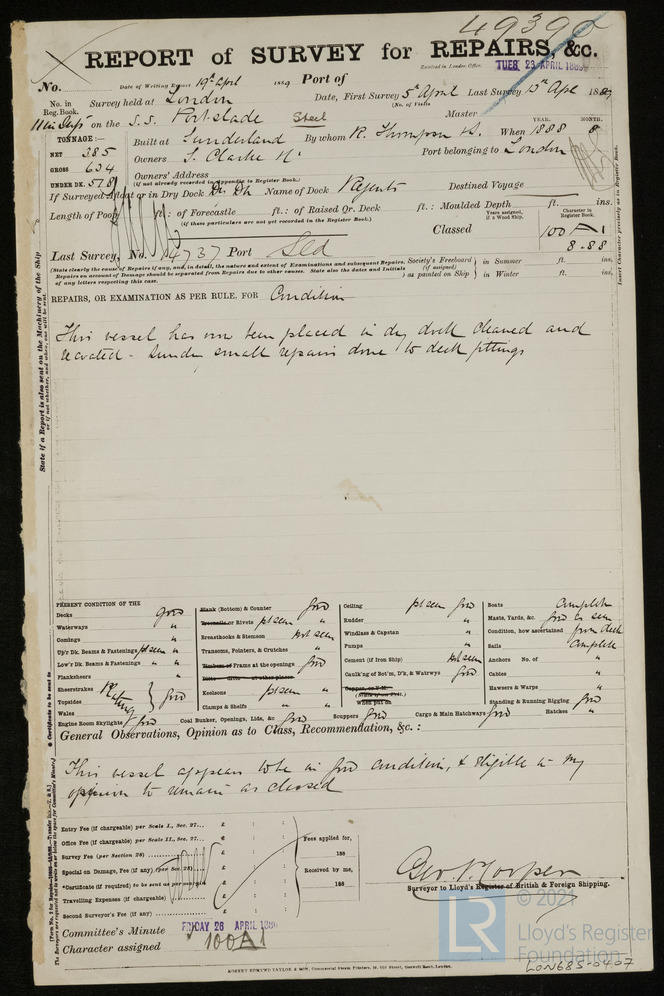 49390
REPORT of SURVEY for REPAIRS, &c.
Received in London Office, TUES 23 APRIL 1889
No. Date of Writing Report 19th April 1889 Port of
No. in Reg. Book. Survey held at London Date, First Survey 5th April Last Survey 1889
(No. of Visits
on the S.S. Portslade Steel Master
TONNAGE:— Built at Sunderland By whom R. Thompson When 1888 YEAR. MONTH. 8
NET 385
GROSS 634 Owners S. Clarke Port belonging to London
UNDER DK. 578 Owners' Address
(if not already recorded in Appendix to Register Book.)
If Surveyed Afloat or in Dry Dock Dry Dk Name of Dock Regents Destined Voyage
Length of Poop ft.: of Forecastle ft.: of Raised Qr. Deck ft.: Moulded Depth ft. ins.
(if these particulars are not yet recorded in the Register Book.)
Years assigned, if a Wood Ship. Character in Register Book.
Classed 100 A1
8.88
Last Survey, No. 14737 Port Sld
(State clearly the cause of Repairs if any, and, in detail, the nature and extent of Examinations and subsequent Repairs.
Repairs on account of Damage should be separated from Repairs due to other causes. State also the dates and Initials
of any letters respecting this case.
Society's Freeboard (if assigned) as painted on Ship in Summer ft. ins.
in Winter ft. ins.
REPAIRS, OR EXAMINATION AS PER RULE, FOR Condition
This vessel has now been placed in dry dock cleaned and
recoated - Sundry small repairs done to deck fittings
PRESENT CONDITION OF THE
Decks good
Waterways "
Comings "
Up'r Dk. Beams & Fastenings pt seen "
Low'r Dk. Beams & Fastenings " "
Planksheers "
Sheerstrakes
Topsides Plating good
Wales
Engine Room Skylights good
Plank (Bottom) & Counter good
Treenails or Rivets pt seen "
Breasthooks & Stemson not seen
Transoms, Pointers, & Crutches "
Timbers or Frame at the openings good
Ditto ditto at other places
Keelsons pt seen "
Clamps & Shelfs " "
Coal Bunker, Openings, Lids, &c good
Ceiling pt seen good
Rudder "
Windlass & Capstan "
Pumps "
Cement (if Iron Ship) not seen
Caulk'ng of Bot'm, D'k, & Watrwys good
When put on
Scuppers good
Cargo & Main Hatchways good
Boats Complete
Masts, Yards, &c. good as seen
Condition, how ascertained from deck
Sails Complete
Anchors No. of "
Cables "
Hawsers & Warps "
Standing & Running Rigging good
Hatches "
General Observations, Opinion as to Class, Recommendation, &c.:
This vessel appears to be in good condition, & eligible in my
opinion to remain as classed
Entry Fee (if chargeable) per Scale I., Sec. 27... £ : :
Office Fee (if chargeable) per Scale II., Sec. 27... £ : :
Survey Fee (per Section 28) £ : :
Special on Damage, Fee (if any) (per Sec. 28) £ : :
*Certificate (if required) to be sent as per margin £ : :
Travelling Expenses (if chargeable) £ : :
Second Surveyor's Fee (if any) £ : :
Fees applied for,
188
Received by me,
188
Geo. P. Cooper
Surveyor to Lloyd's Register of British & Foreign Shipping.
Committee's Minute FRIDAY 26 APRIL 1889
Character assigned 100A1
ROBERT EDMUND TAYLOR & SON, Commercial Steam Printers, 19, Old Street, Goswell Road, London.
© 2021
LR Lloyd's Register
Foundation
LON685-0407
State if a Report is also sent on the Machinery of the Ship
Insert Character precisely as in Register Book.